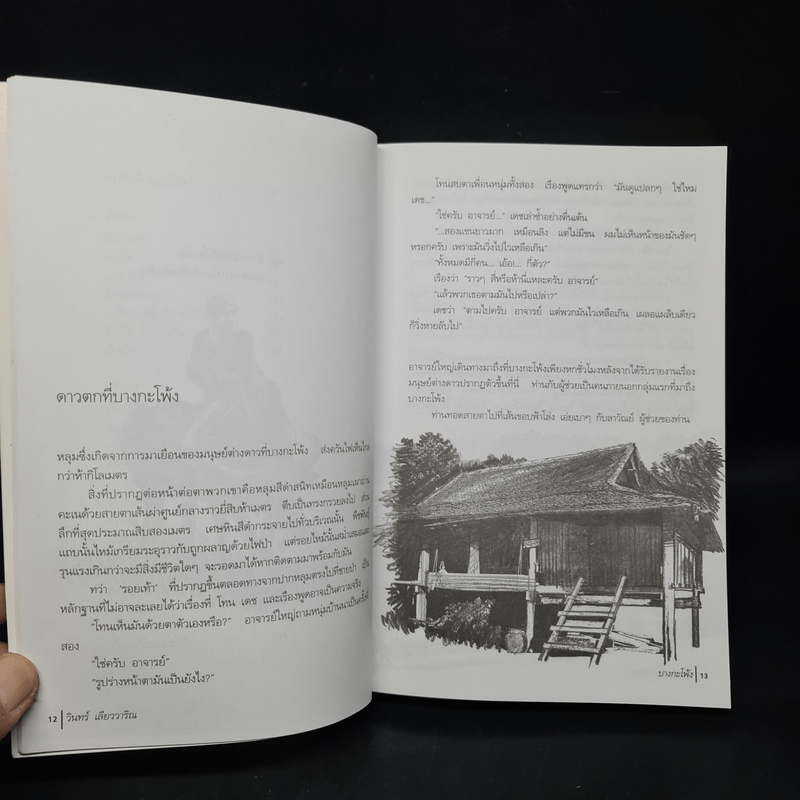 ดาวตกที่บางกะโพ้ง
หลุมซึ่งเกิดจากการมาเยือนของมนุษย์ต่างดาวที่บางกะโพ้ง ส่งควันไฟเห็นไกล
กว่าห้ากิโลเมตร
สิ่งที่ปรากฏต่อหน้าต่อตาพวกเขาคือหลุมสีดำสนิทเหมือนหลุมเผาถ่าน
คะเนด้วยสายตาเส้นผ่าศูนย์กลางราวยี่สิบห้าเมตร ตีบเป็นทรงกรวยลงไป ส่วน
ลึกที่สุดประมาณสิบสองเมตร เศษหินสีดำกระจายไปทั่วบริเวณนั้น พืชพันธุ์
แถบนั้นไหม้เกรียมระอุราวกับถูกผลาญด้วยไฟป่า แต่รอยไหม้นั้นสม่ำเสมอและ
รุนแรงเกินกว่าจะมีสิ่งมีชีวิตใดๆ จะรอดมาได้หากติดตามมาพร้อมกับมัน
ทว่า 'รอยเท้า' ที่ปรากฏขึ้นตลอดทางจากปากหลุมตรงไปที่ชายป่า เป็น
หลักฐานที่ไม่อาจละเลยได้ว่าเรื่องที่ โทน เดช และเรืองพูดอาจเป็นความจริง
"โทนเห็นมันด้วยตาตัวเองหรือ?" อาจารย์ใหญ่ถามหนุ่มบ้านนาเป็นครั้งที่
สอง
"ใช่ครับ อาจารย์"
"รูปร่างหน้าตามันเป็นยังไง?"
12 | วินทร์ เลียววาริณ
โทนสบตาเพื่อนหนุ่มทั้งสอง เรืองพูดแทรกว่า "มันดูแปลกๆ ใช่ไหม
เดช..."
"ใช่ครับ อาจารย์..." เดชเล่าซ้ำอย่างตื่นเต้น
"...สองแขนยาวมาก เหมือนลิง แต่ไม่มีขน ผมไม่เห็นหน้าของมันชัดๆ
หรอกครับ เพราะมันวิ่งไปไวเหลือเกิน"
"ทั้งหมดมีกี่คน... เอ้อ!... กี่ตัว?"
เรืองว่า "ราวๆ สี่หรือห้านี่แหละครับ อาจารย์"
"แล้วพวกเธอตามมันไปหรือเปล่า?"
เดชว่า "ตามไปครับ อาจารย์ แต่พวกมันไวเหลือเกิน เผลอแผล็บเดียว
ก็วิ่งหายลับไป"
อาจารย์ใหญ่เดินทางมาถึงที่บางกะโพ้งเพียงหกชั่วโมงหลังจากได้รับรายงานเรื่อง
มนุษย์ต่างดาวปรากฏตัวขึ้นที่นี่ ท่านกับผู้ช่วยเป็นคนภายนอกกลุ่มแรกที่มาถึง
บางกะโพ้ง
ท่านทอดสายตาไปที่เส้นขอบฟ้าโล่ง เอ่ยเบาๆ กับลาวัณย์ ผู้ช่วยของท่าน
บางกะโพ้ง | 13